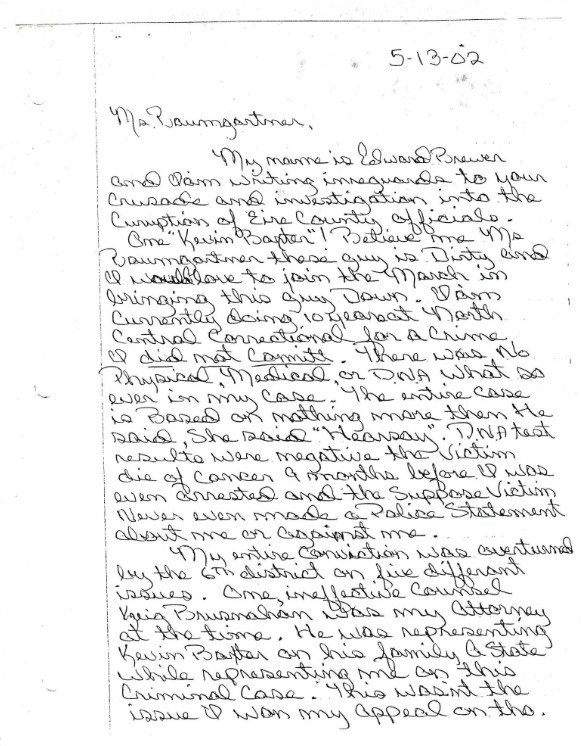 5-13-02
Ms. Baumgartner,
My name is Edward Brewer
and I am writing inreguards to your
Crusade and investigation into the
Curuption of Eire County officials.
One "Kevin Baxter"! Believe me Ms
Baumgartner these guy is Dirty and
I would love to join the March in
bringing this guy Down. I am
Currently doing 10 years at North
Central Correctional for a Crime
I did not Commit. There was No
Physical, Medical, or DNA what so
ever in my case. The entire case
is Based on nothing more then He
said, She said "Hearsay". DNA test
results were negative the Victim
die of cancer 9 months before I was
even arrested and the Suppose Victim
Never even made a Police Statement
about me or against me.
My entire Conviction was overturned
by the 6th district on five different
issues. One, ineffective Counsel
Kreig Brusnahan was my Attorney
at the time. He was representing
Kevin Baxter on his family E State
while representing me on this
Criminal Case. This wasn't the
issue I won my Appeal on tho.